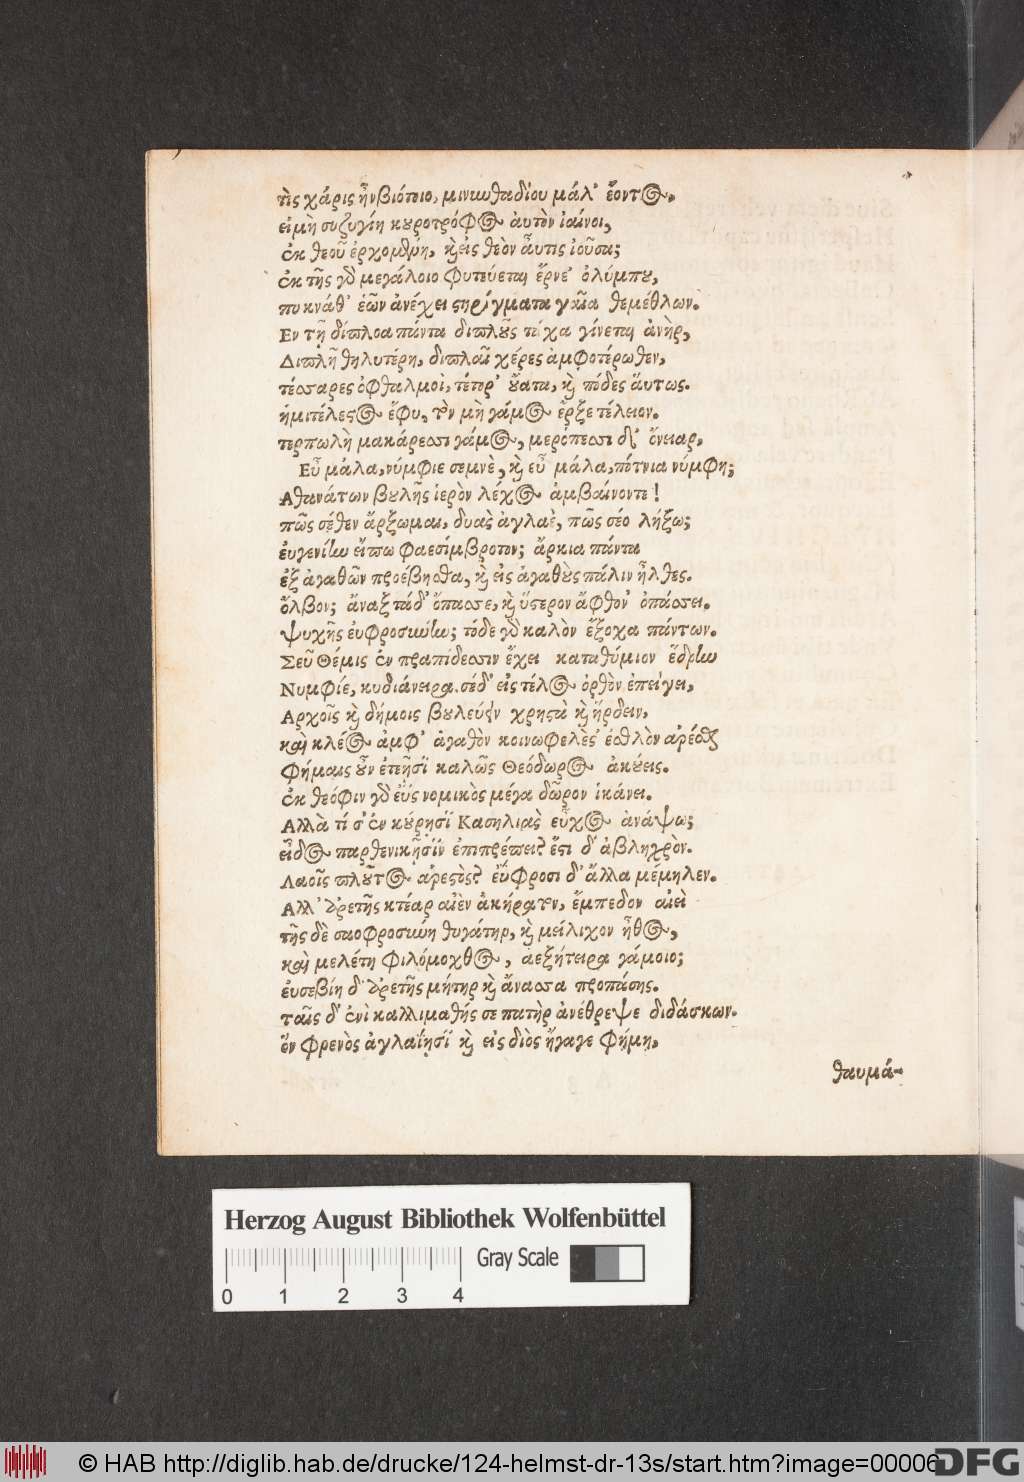 τὶς χάρις ἦν βιότοιο, μινυνθαδίου μάλ' ἔοντος,
εἰ μὴ συζυγίη κουροτρόφος αὐτὸν ἰαίνοι,
ἐκ θεοῦ ἐρχομένη, καὶ εἰς θεὸν αὖτις ἰοῦσα;
ἐκ τῆς γὸ μεγάλοιο φυτεύεται ἔρνε' ὀλύμπου,
πυκνάθ' ἑῶν ἀνέχει στηρίγματα γαῖα θεμέθλων.
Εν τῇ δίπλοα πάντα διπλοῦς τάχα γίνεται ἀνὴρ,
Διπλῆ θηλυτέρη, διπλαῖ χέρες ἀμφοτέρωθεν,
τέσσαρες ὀφθαλμοὶ, τέτορ' οὔατα, καὶ πόδες αὕτως.
ἡμιτέλεστος ἔφυ, τὸν μὴ γάμος ἔρξε τέλειον.
τερπωλὴ μακάρεσσι γάμος, μερόπεσσι δ' ὄνειαρ,
Εὖ μάλα, νύμφιε σεμνὲ, καὶ εὖ μάλα, πότνια νύμφη;
Αθανάτων βουλῆς ἱερὸν λέχος ἀμβαίνοντε!
πῶς σέθεν ἄρξωμαι, δυὰς ἀγλαὲ, πῶς σέο λήξω;
εὐγενίην εἴπω φαεσίμβροτον; ἄρκια πάντα
ἐξ ἀγαθῶν προέβησθα, καὶ εἰς ἀγαθοὺς πάλιν ἦλθες.
ὄλβον; ἄναξ τάδ' ὄπασσε, καὶ ὕστερον ἄφθον' ὀπάσσει.
ψυχῆς εὐφροσύνην; τόδε γὸ καλὸν ἔξοχα πάντων.
Σεῦ Θέμις ἐν πραπίδεσσιν ἔχει καταθύμιον ἕδρην
Νυμφίε, κυδιάνειρα. σέδ' εἰς τέλος ὀρθὸν ἐπείγει,
Αρχοῖς καὶ δήμοις βουλεύειν χρηστὰ καὶ ἥρδειν,
καὶ κλέος ἀμφ' ἀγαθὸν κοινωφελὲς ἐσθλὸν ἀρέσθαι
Φήμαις οὖν ἐτεῇσϊ καλῶς Θεόδωρος ἀκούεις.
ἐκ θεόφιν γὸ ἐῢς νομικὸς μέγα δῶρον ἱκάνει.
Αλλὰ τί σ' ἐν κούρῃσϊ Κασηλιὰς εὖχος ἀνάψω;
εἶδος παρθενικῇσϊν ἐπιπρέπει? ἔστι δ' ἀβληχρὸν.
Λαοῖς πλοῦτος ἀρεστὸς? ἐΰφροσι δ' ἄλλα μέμηλεν.
Αλλ' ἀρετῆς κτέαρ αἰὲν ἀκήρατον, ἔμπεδον αἰεὶ
τῆς δὲ σαοφροσύνη θυγάτηρ, καὶ μείλιχον ἦθος,
καὶ μελέτη φιλόμοχθος, ἀεξήτειρα γάμοιο;
εὐσεβίη δ' ἀρετῆς μήτηρ καὶ ἄνασσα προπάσης.
ταῖς δ' ἐνὶ καλλιμαθής σε πατὴρ ἀνέθρεψε διδάσκων.
ὃν φρενὸς ἀγλαΐῃσϊ καὶ εἰς διὸς ἤγαγε φήμη,
θαυμά-
Herzog August Bibliothek Wolfenbüttel
Gray Scale
0 1 2 3 4
© HAB http://diglib.hab.de/drucke/124-helmst-dr-13s/start.htm?image=00006
DFG